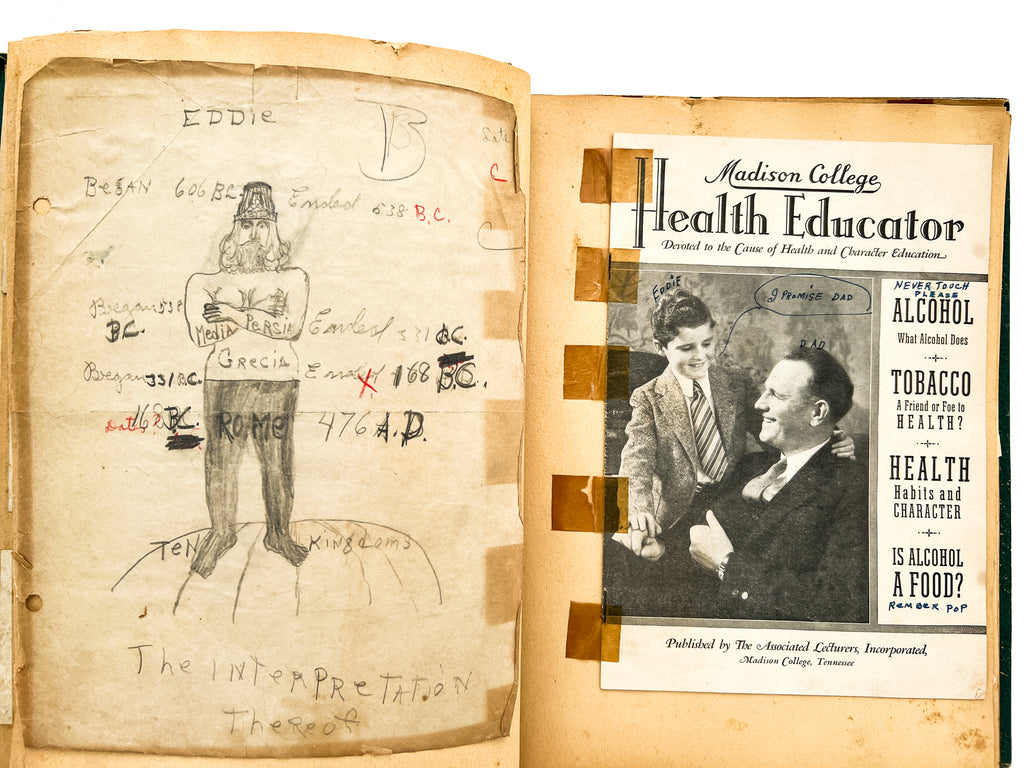 EDDie
B
Date
C
BegAN 606 BC Ended 538 B.C.
Began 538 B.C.
MediA PeRSIA
Ended 331 B.C.
GReciA
Began 331 B.C. Ended 168 B.C.
Date? 168 B.C.
ROMe
476 A.D.
TeN KiNgdoms
The INterPRetATioN
Thereof
Madison College
Health Educator
Devoted to the Cause of Health and Character Education
EDDIE
I PROMISE DAD
DAD
NEVER TOUCH
PLEASE
ALCOHOL
What Alcohol Does
TOBACCO
A Friend or Foe to
HEALTH?
HEALTH
Habits and
CHARACTER
IS ALCOHOL
A FOOD?
REMBER POP
Published by The Associated Lecturers, Incorporated,
Madison College, Tennessee